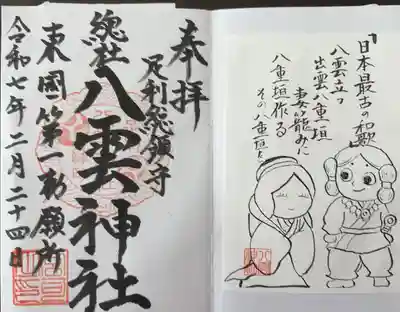 奉拝
足利総鎮守
總社
八雲神社
東国第一勅願所
令和七年二月二十四日
「日本最古の和歌」
八雲立つ
出雲八重垣
妻籠みに
八重垣作る
その八重垣を